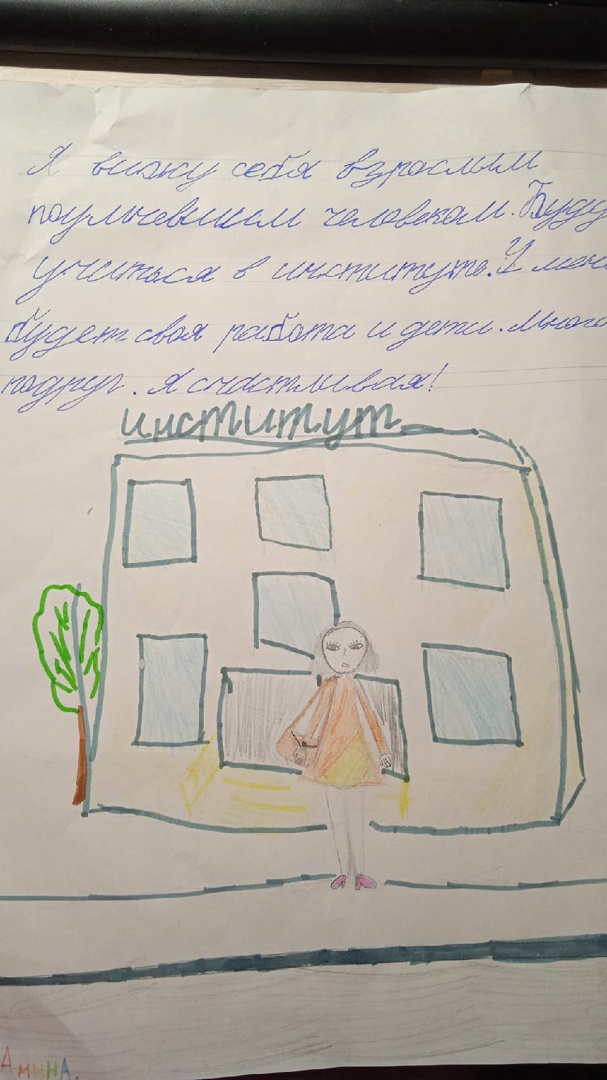 Я вижу себя взрослым
поумневшим человеком. Буду
учиться в институте. У меня
будет своя работа и дети. Много
подруг. Я счастливая!
институт
Амина.